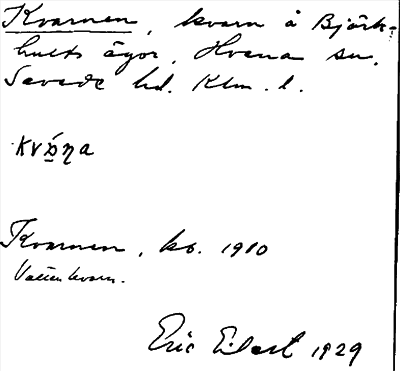 Kvarnen, kvarn å Björk-
hults ägor, Hvena sn,
Sevede hd. Klm. l.
kvɒ́ŋa
Kvarnen, kb. 1910
Vattenkvarn.
Eric Eilert 1929